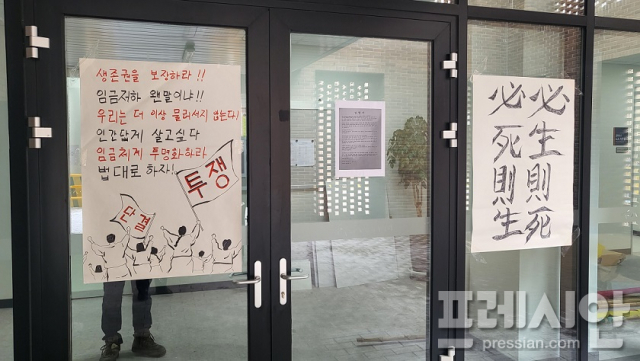 생존권을 보장하라!!
임금저하 왠말이냐!!
우리는 더 이상 물러서지 않는다!
인간답게 살고싶다
임금체계 투명화하라
법대로 하자!
투쟁
단결
必生則死
必死則生
프레시안
pressian.com